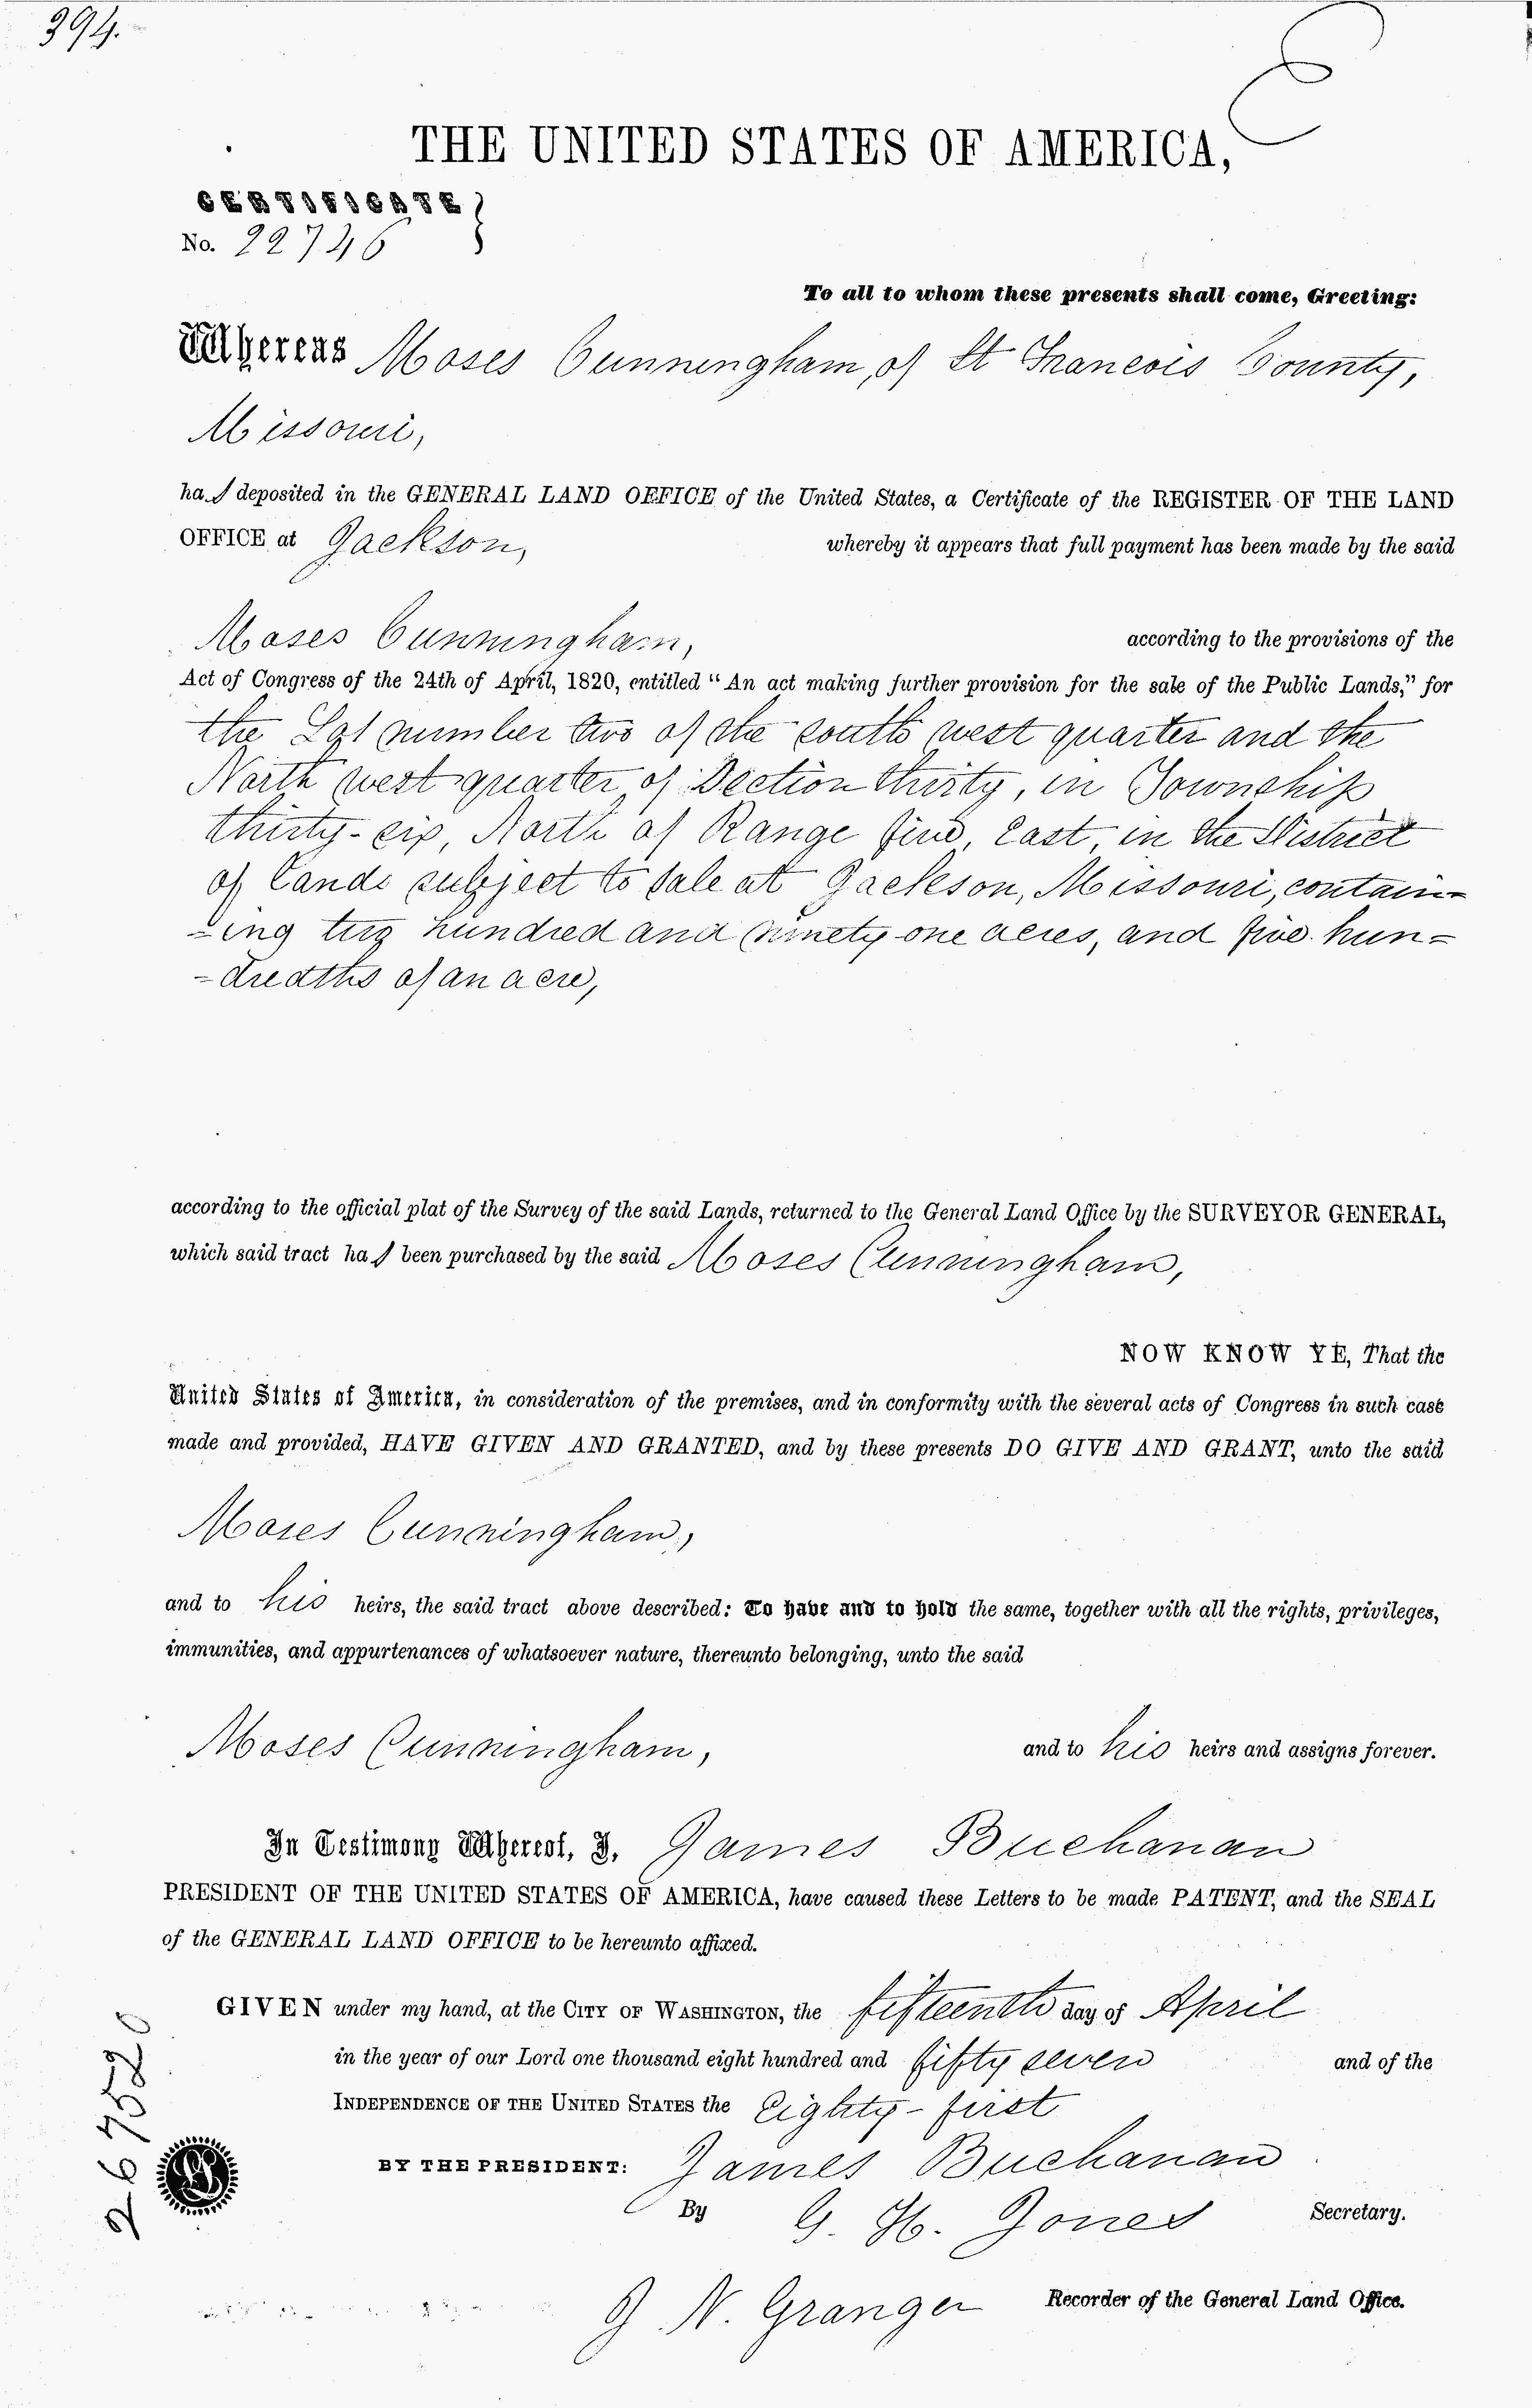 394.
THE UNITED STATES OF AMERICA,
CERTIFICATE
No. 22746
To all to whom these presents shall come, Greeting:
Whereas Moses Cunningham, of St Francois County,
Missouri,
has deposited in the GENERAL LAND OFFICE of the United States, a Certificate of the REGISTER OF THE LAND
OFFICE at Jackson, whereby it appears that full payment has been made by the said
Moses Cunningham, according to the provisions of the
Act of Congress of the 24th of April, 1820, entitled "An act making further provision for the sale of the Public Lands," for
the Lot number two of the south west quarter and the
North west quarter of Section thirty, in Township
thirty-six, North of Range five, East, in the District
of Lands subject to sale at Jackson, Missouri, contain-
-ing two hundred and ninety one acres, and five hun-
-dredths of an acre,
according to the official plat of the Survey of the said Lands, returned to the General Land Office by the SURVEYOR GENERAL,
which said tract has been purchased by the said Moses Cunningham,
NOW KNOW YE, That the
United States of America, in consideration of the premises, and in conformity with the several acts of Congress in such case
made and provided, HAVE GIVEN AND GRANTED, and by these presents DO GIVE AND GRANT, unto the said
Moses Cunningham,
and to his heirs, the said tract above described: To have and to hold the same, together with all the rights, privileges,
immunities, and appurtenances of whatsoever nature, thereunto belonging, unto the said
Moses Cunningham, and to his heirs and assigns forever.
In Testimony Whereof, I, James Buchanan
PRESIDENT OF THE UNITED STATES OF AMERICA, have caused these Letters to be made PATENT, and the SEAL
of the GENERAL LAND OFFICE to be hereunto affixed.
GIVEN under my hand, at the CITY OF WASHINGTON, the fifteenth day of April
in the year of our Lord one thousand eight hundred and fifty seven and of the
INDEPENDENCE OF THE UNITED STATES the Eighty-first
BY THE PRESIDENT: James Buchanan
By G. H. Jones Secretary.
J. N. Granger Recorder of the General Land Office.